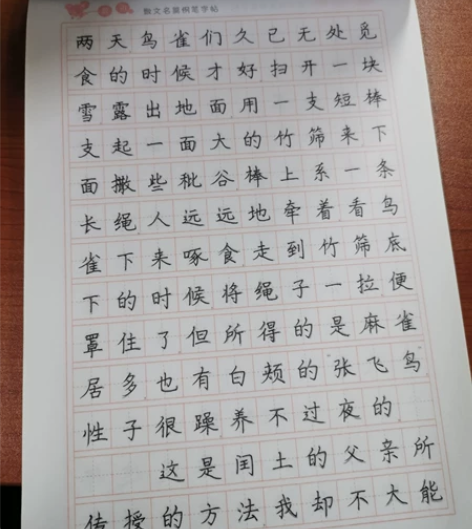 散文名篇钢笔字帖
两天鸟雀们久已无处觅
食的时候才好扫开一块
雪露出地面用一支短棒
支起一面大的竹筛来下
面撒些秕谷棒上系一条
长绳人远远地牵着看鸟
雀下来啄食走到竹筛底
下的时候将绳子一拉便
罩住了但所得的是麻雀
居多也有白颊的张飞鸟
性子很躁养不过夜的
这是闰土的父亲所
传授的方法我却不大能